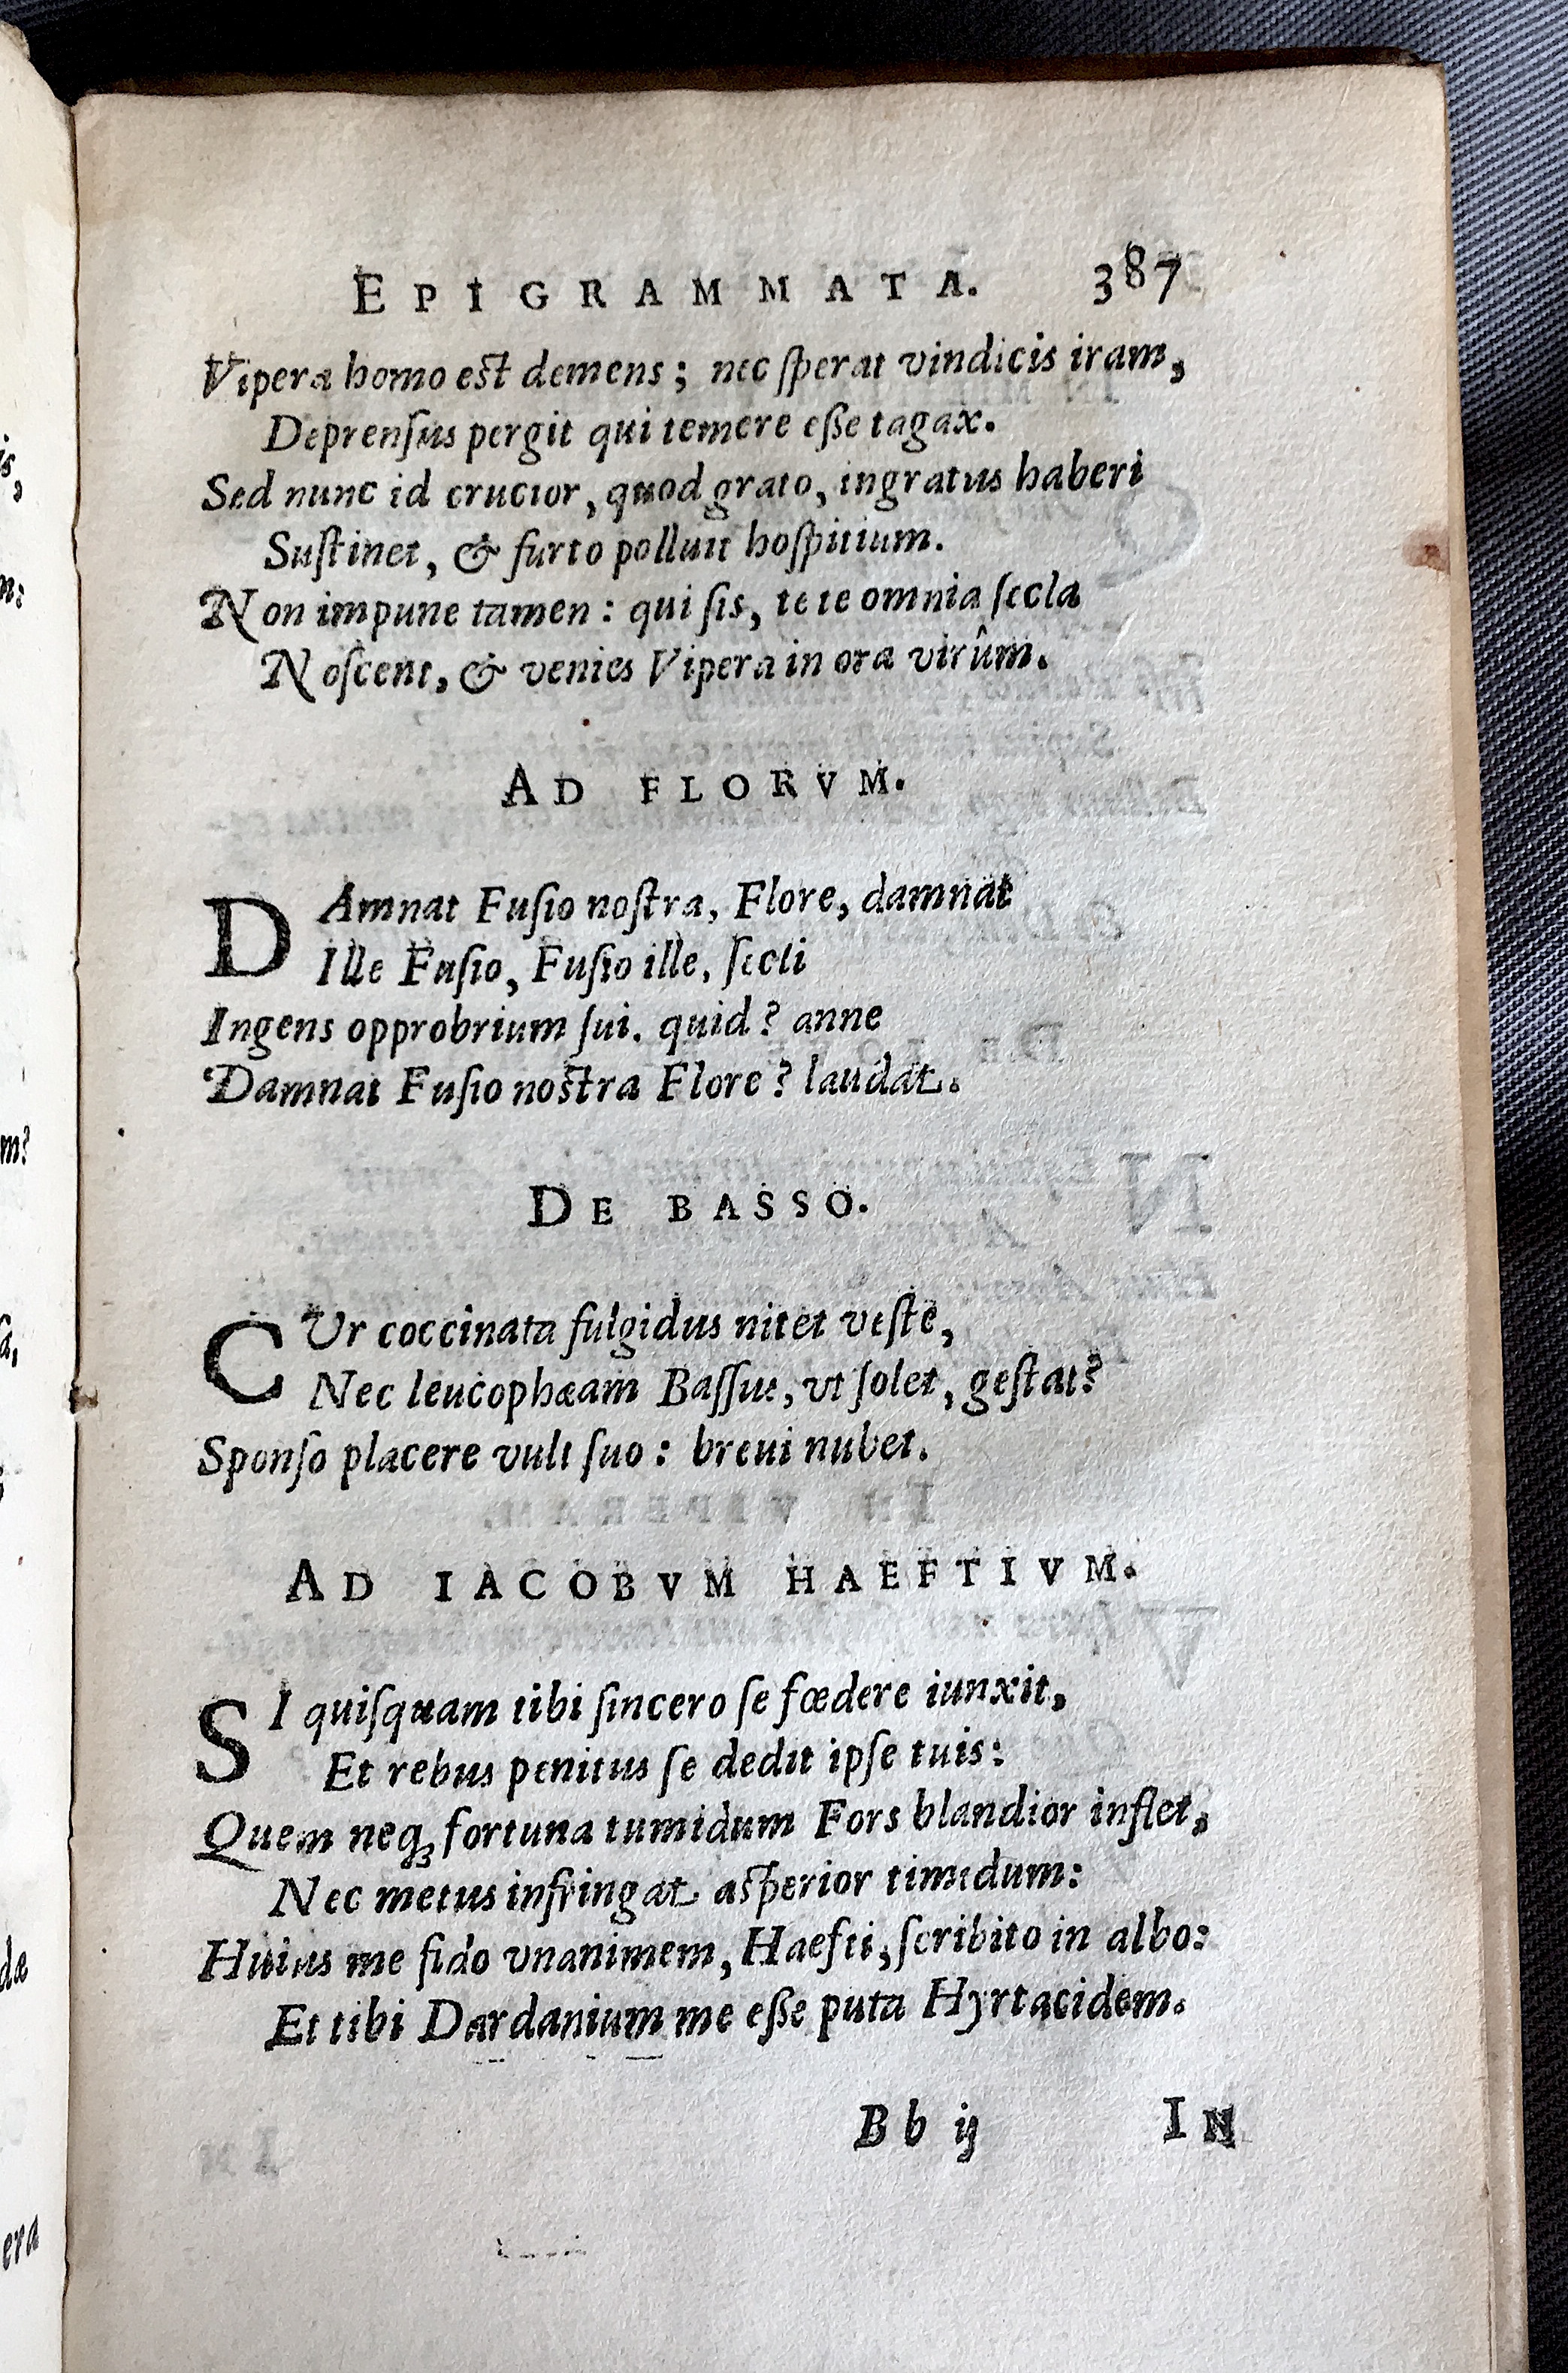 EPIGRAMMATA. 387
Vipera homo est demens; nec ſperat vindicis iram,
Deprenſus pergit qui temere eſſe tagax.
Sed nunc id crucior, quod grato, ingratus haberi
Suſtinet, & furto polluit hoſpitium.
Non impune tamen: qui ſis, te te omnia ſecla
Noſcent, & venies Vipera in ora virûm.
AD FLORVM.
DAmnat Fuſio noſtra, Flore, damnat
Ille Fuſio, Fuſio ille, ſecli
Ingens opprobrium ſui. quid? anne
Damnat Fuſio nostra Flore? laudat.
DE BASSO.
CUr coccinata fulgidus nitet veſte,
Nec leucophæam Baſſus, vt ſolet, geſtat?
Sponſo placere vult ſuo: breui nubet.
AD IACOBVM HAEFTIVM.
SI quiſquam tibi ſincero ſe fœdere iunxit,
Et rebus penitus ſe dedit ipſe tuis:
Quem neq; fortuna tumidum Fors blandior inflet,
Nec metus infringat aſperior timidum:
Huius me fido vnanimem, Haefti, ſcribito in albo:
Et tibi Dardanium me eſſe puta Hyrtacidem.
Bb ij IN
is,
m:
m?
ſa,
dæ
era